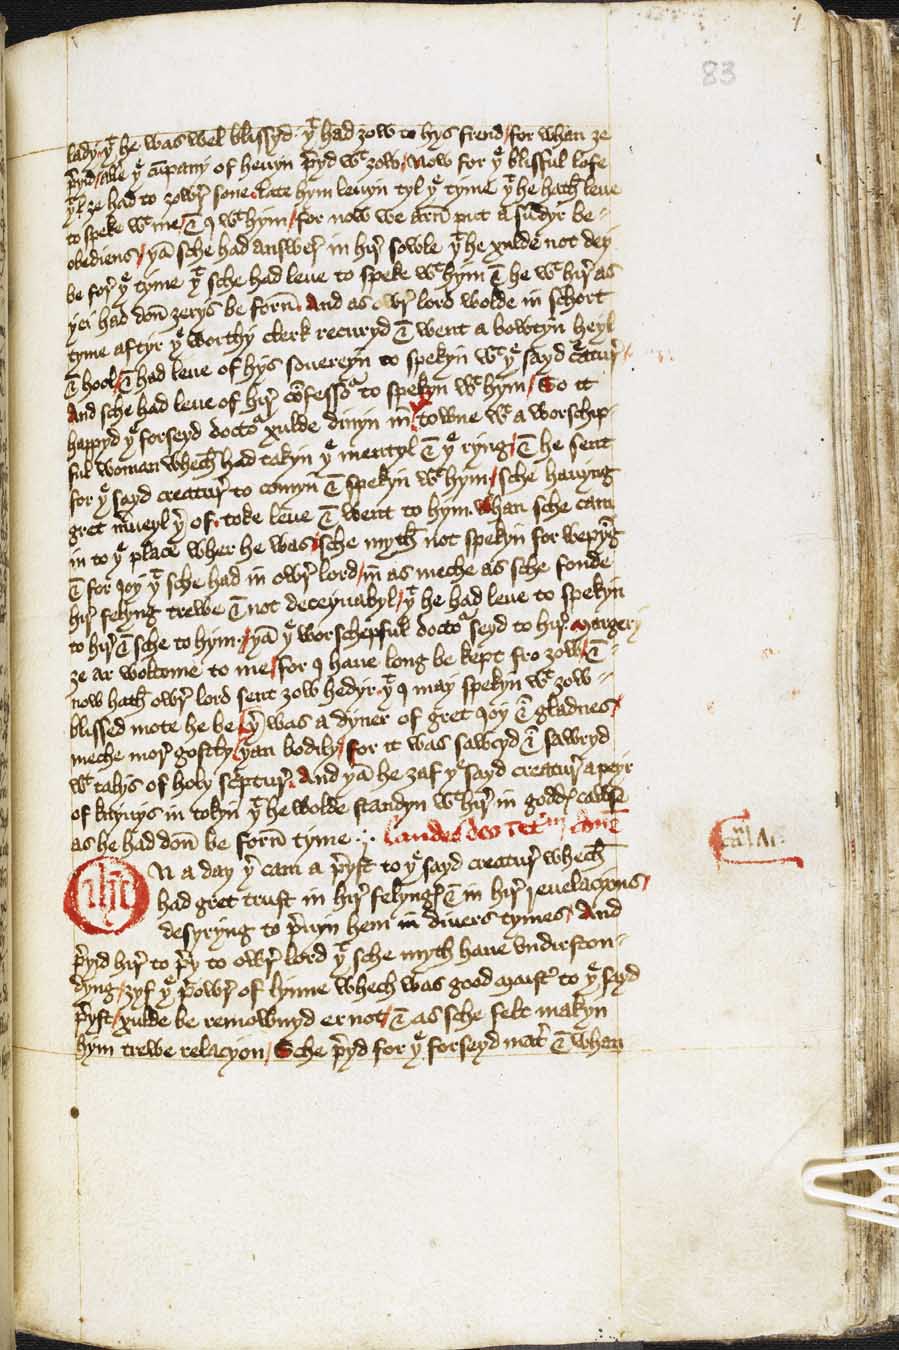 83
lady / þͭ he was wel blissyd þͭ had ȝow to hys frend / for whan ȝe
p̄yid / alle yͤ cūpany of heuyn p̄yd wͭ ȝow / Now for yͤ blisful lofe
þͭ ȝe had to ȝowr̄ sone / late hym leuyn tyl yͤ tyme þͭ he hath̄ leue
to speke wͭ me / & I wͭ hym / for now we arn̄ put a sūdyr be //
obediens / yā sche had answer̄ in hir̄ sowle þͭ he xulde not dey
be for̄ yͤ tyme þͭ sche had leue to speke wͭ hym & he wͭ hir̄ as
yei had don̄ ȝerys be forn̄ . And as owr̄ lord wolde in schort
tyme aftyr yͤ worthy clerk recuryd & went a bowtyn heyl
& hool / & had leue of hys souereyn to spekyn wͭ yͤ sayd c̄atur̄ /
And sche had leue of hir̄ cōfessoͬ to spekyn wͭ hym / So it
happyd yͤ forseyd doctoͬ xulde dinyn in towne wͭ a worschip-
ful woman whech̄ had takyn yͤ mentyl & yͤ ryng / & he sent
for yͤ sayd creatur̄ to comyn & spekyn wͭ hym / sche hauyng
gret m̄ueyl yͬ of / toke leue & went to hym . Whan sche cam
in to yͤ place wher he was / sche myth̄ not spekyn for wepȳg
& for Joy þͭ sche had in owr̄ lord / in̄ as meche as sche fonde
hir̄ felyng trewe & not deceyuabyl / þͭ he had leue to spekyn
to hir̄ & sche to hym / yā yͤ worschepful doctoͬ seyd to hir̄ Margery
ȝe ar wolcome to me / for I haue long be kept fro ȝow / & //
now hath̄ owr̄ lord sent ȝow hedyr þͭ I may spekyn wͭ ȝow //
blissed mote he be / yͬ was a dyner of gret Joy & gladnes /
meche mor̄ gostly / yan bodily / for it was sawcyd & sawryd
wͭ talys of holy sc̄ptur̄ . And yā he ȝaf yͤ sayd creatur̄ a peyr
of knyuys in tokyn þͭ he wolde standyn wͭ hir̄ in goddꝭ cawse
as he had don̄ be forn̄ tyme
ih̄c
N a day yͬ cam a p̄yst to yͤ sayd creatur̄ whech̄
had gret trust in hir̄ felyngꝭ & in hir̄ reuelacyons /
desyryng to p̄uyn hem in diuers tymes / And
p̄yid hir̄ to p̄y to owr̄ lord þͭ sche myth haue vndirston-
dyng / ȝyf yͤ p̄owr̄ of lynne whech was good maistͬ to yͤ sayd
p̄yst / xulde be remownyd er not / & as sche felt makyn
hym trewe relacyon / Sche p̄yd for yͤ forseyd mat̄ & whan